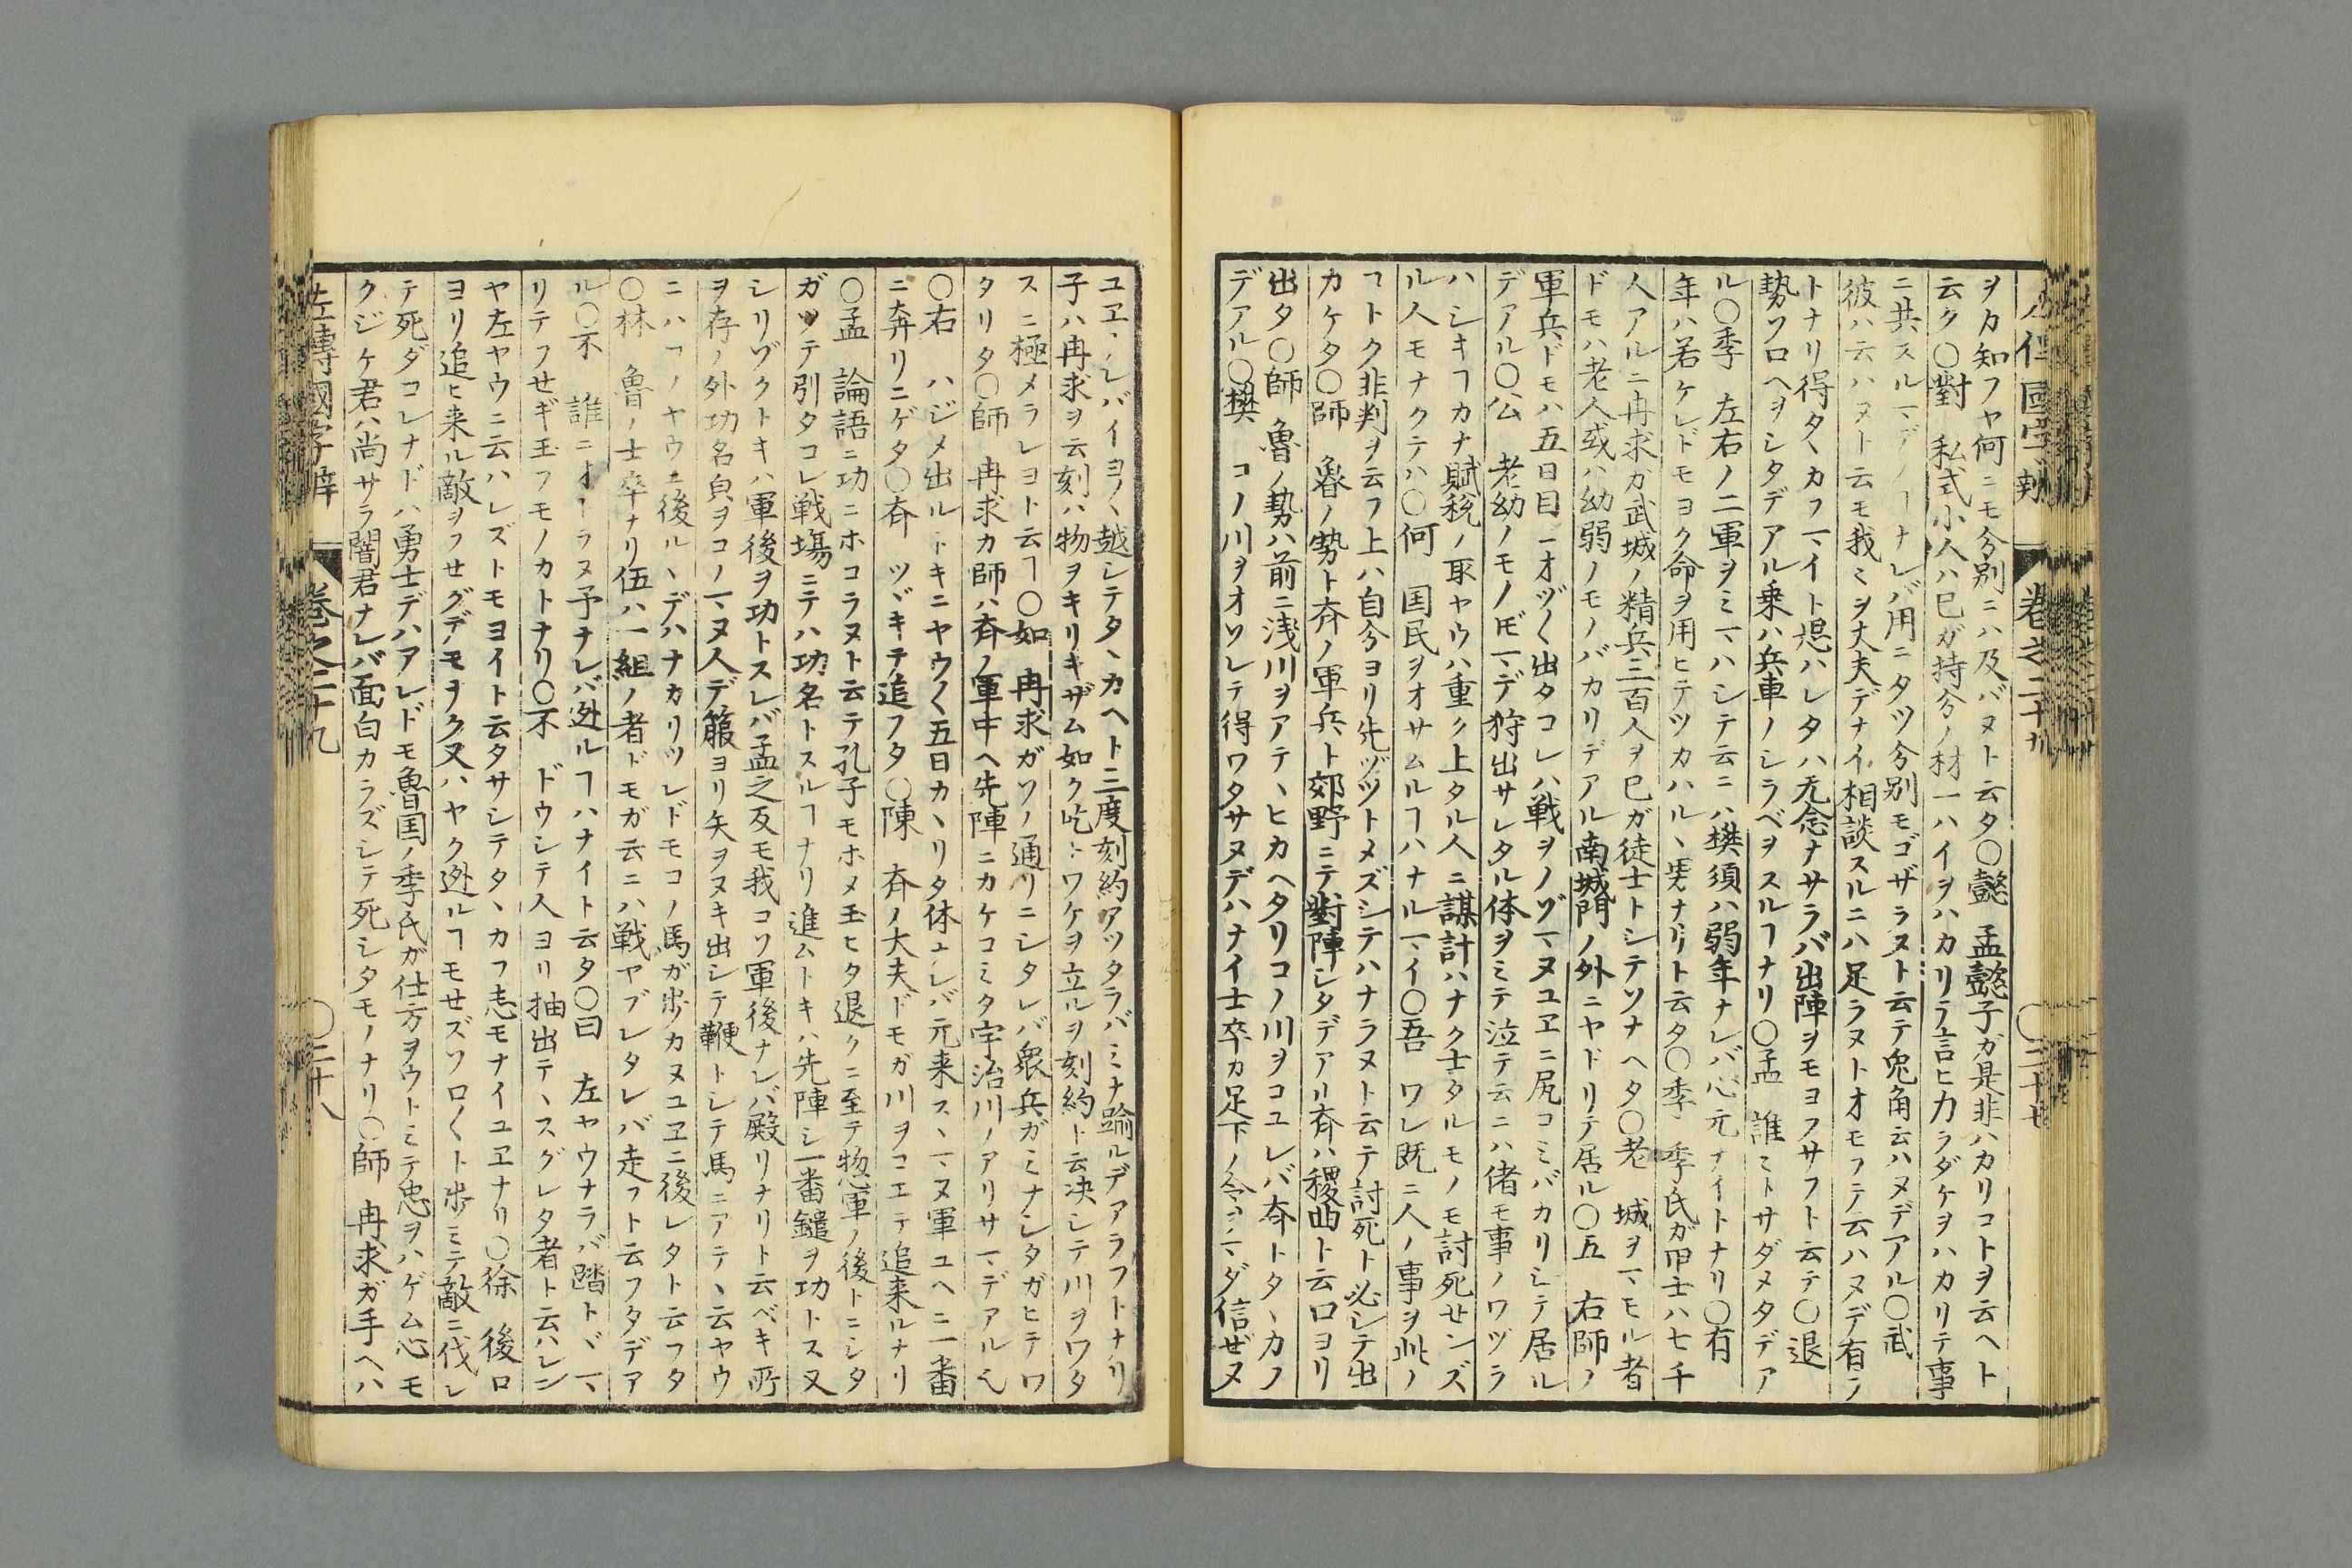 ヲカ知フヤ何ニモ分別ニハ及バヌト云タ〇懿 孟懿子ガ是非ハカリコトヲ云ヘト
云ク〇對 私式小人ハ巳ガ持分ノ材一ハイヲハカリラ言ヒ力ラダケヲハカリテ事
ニ共スルヿデノヿナレバ用ニタツ分別モゴザラヌト云テ兎角云ハヌデアル〇武
彼ハ云ハヌト云モ我ミヲ大夫デナイ相談スルニハ足ラヌトオモフテ云ハヌデ有フ
トナリ得タヽカフマイト思ハレタハ无念ナサラバ出陣ヲモヨフサフト云テ〇退
勢ソロヘヲシタデアル乗ハ兵車ノシラベヲスルヿナリ〇孟 誰ミトサダメタデア
ル〇季 左右ノ二軍ヲミマハシテ云ニハ樊須ハ弱年ナレバ心元ナイトナリ〇有
年ハ若ケレドモヨク命ヲ用ヒテツカハルヽ男ナリト云タ〇季 季氏ガ甲士ハ七千
人アルニ冉求ガ武城ノ精兵三百人ヲ巳ガ徒士トシテソナヘタ〇老 城ヲマモル者
ドモハ老人或ハ幼弱ノモノバカリデアル南城門ノ外ニヤドリテ居ル〇五 右師ノ
軍兵ドモハ五日目ニオヅ〱出タコレハ戦ヲノゾマヌユヱニ尻コミバカリシテ居ル
デアル〇公 老幼ノモノ𪜈マデ狩出サレタル体ヲミテ泣テ云ニハ偖モ事ノワヅラ
ハシキヿカナ賦税ノ取ヤウハ重ク上タル人ニ謀計ハナク士タルモノモ討死せンズ
ル人モナクテハ〇何 囯民ヲオサムルヿハナルマイ〇吾 ワレ既ニ人ノ事ヲ此ノ
ヿトク非判ヲ云フ上ハ自分ヨリ先ヅツトメズシテハナラヌト云テ討死ト必シテ出
カケタ〇師 魯ノ勢ト斉ノ軍兵ト郊野ニテ對陣シタデアル斉ハ稷曲ト云口ヨリ
出タ〇師 魯ノ勢ハ前ニ浅川ヲアテヽヒカヘタリコノ川ヲコユレバ斉トタヽカフ
デアル〇樊 コノ川ヲオソレテ得ワタサヌデハナイ士卒カ足下ノ令ヲマダ信ぜヌ
ユヱヽレバイヨ〱越シテタヽカヘト三度刻約アツタラバミナ踰ルデアラフトナリ
子ハ冉求ヲ云刻ハ物ヲキリキザム如ク屹トワケヲ立ルヲ刻約ト云决シテ川ヲワタ
スニ極メラレヨト云ヿ〇如 冉求ガソノ通リニシタレバ衆兵ガミナシタガヒテワ
タリタ〇師 冉求カ師ハ斉ノ軍中ヘ先陣ニカケコミタ宇治川ノアリサマデアル
〇右 ハジメ出ルトキニヤウ〱五日カヽリタ体ユレバ元来スヽマヌ軍ユヘニ一番
ニ奔リニゲタ〇斉 ツヾキテ追フタ〇陳 斉ノ大夫ドモガ川ヲコエテ追来ルナリ
〇孟 論語ニ功ニホコラヌト云テ孔子モホメ玉ヒタ退クニ至テ惣軍ノ後トニシタ
ガツテ引タコレ戦塲ニテハ功名トスルヿナリ進ムトキハ先陣シ一番鑓ヲ功トス又
シリゾクトキハ軍後ヲ功トスレバ孟之反モ我コソ軍後ナレバ殿リナリト云ベキ所
ヲ存ノ外功名負ヲコノマヌ人デ箙ヨリ矢ヲヌキ出シテ鞭トシテ馬ニアテヽ云ヤウ
ニハコノヤウニ後ルヽデハナカリツレドモコノ馬ガ歩ノカヌユヱニ後レタト云フタ
〇林 魯ノ士卒ナリ伍ハ一組ノ者ドモガ云ニハ戦ヤブレタレバ走フト云フタデア
ル〇不 誰ニオトラヌ予ナレバ迯ルヿハナイト云タ〇曰 左ヤウナラバ踏トヾマ
リテフせギ玉フモノカトナリ〇不 ドウシテ人ヨリ抽出テヽスグレタ者ト云ハレン
ヤ左ヤウニ云ハレズトモヨイト云タサシテタヽカフ志モナイユヱナリ〇徐 後口
ヨリ追ヒ来ル敵ヲフせグデノモヲク又ハヤク迯ルヿモせズソロ〱ト歩ミテ敵ニ伐レ
テ死ダコレナドハ勇士デハアレドモ魯囯ノ季氏ガ仕方ヲウトミテ忠ヲハゲム心モ
クジケ君ハ尚サラ闇君ナレバ面白カラズシテ死シタモノナリ〇師 冉求ガ手ヘハ
左傳國字辯 卷之二十九 〇二十八